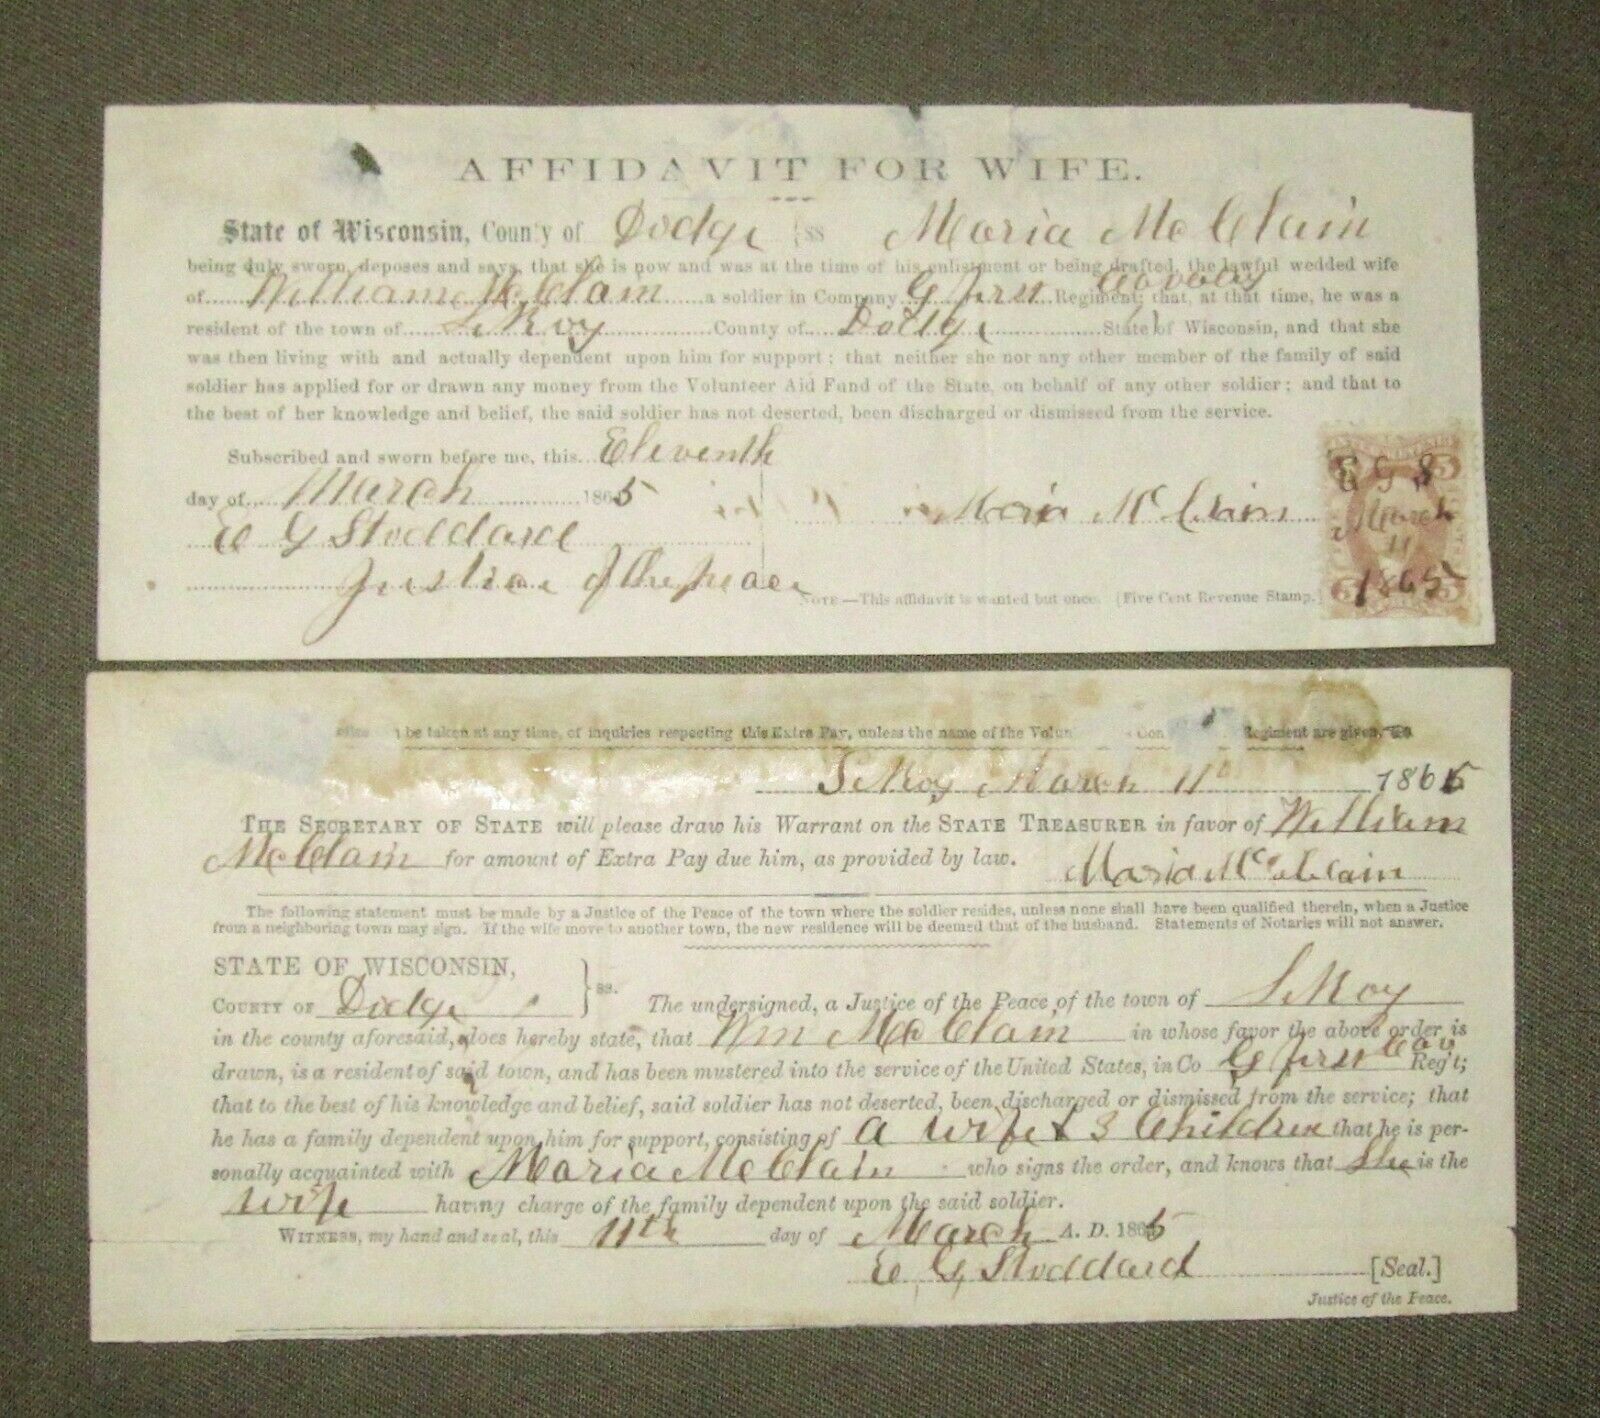 AFFIDAVIT FOR WIFE.
State of Wisconsin, County of Dodge } ss Maria McClain
being duly sworn, deposes and says, that she is now and was at the time of his enlistment or being drafted, the lawful wedded wife
of William McClain a soldier in Company G first Regiment; that, at that time, he was a
resident of the town of LeRoy County of Dodge State of Wisconsin, and that she
was then living with and actually dependent upon him for support; that neither she nor any other member of the family of said
soldier has applied for or drawn any money from the Volunteer Aid Fund of the State, on behalf of any other soldier; and that to
the best of her knowledge and belief, the said soldier has not deserted, been discharged or dismissed from the service.
Subscribed and sworn before me, this Eleventh
day of March 1865
Maria McClain
E G Stoddard
Justice of the peace
NOTE.—This affidavit is wanted but once. (Five Cent Revenue Stamp.)
E G S
March
11
1865
5 5
be taken at any time, of inquiries respecting this Extra Pay, unless the name of the Volun Con Regiment are given,
LeRoy March 11 1865
THE SECRETARY OF STATE will please draw his Warrant on the STATE TREASURER in favor of William
McClain for amount of Extra Pay due him, as provided by law.
Maria McClain
The following statement must be made by a Justice of the Peace of the town where the soldier resides, unless none shall have been qualified therein, when a Justice
from a neighboring town may sign. If the wife move to another town, the new residence will be deemed that of the husband. Statements of Notaries will not answer.
STATE OF WISCONSIN,
COUNTY OF Dodge } ss. The undersigned, a Justice of the Peace of the town of LeRoy
in the county aforesaid, does hereby state, that Wm McClain in whose favor the above order is
drawn, is a resident of said town, and has been mustered into the service of the United States, in Co G first Cav Reg't;
that to the best of his knowledge and belief, said soldier has not deserted, been discharged or dismissed from the service; that
he has a family dependent upon him for support, consisting of a wife & 3 Children that he is per-
sonally acquainted with Maria McClain who signs the order, and knows that She is the
wife having charge of the family dependent upon the said soldier.
WITNESS, my hand and seal, this 11th day of March A. D. 1865
E G Stoddard [Seal.]
Justice of the Peace.